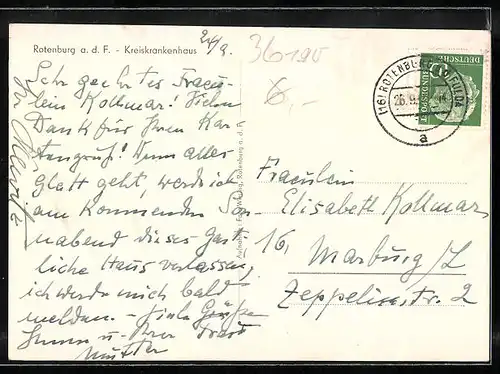 Rotenburg a. d. F. - Kreiskrankenhaus
26/9.
36-190
6,-
Sehr geehrtes Fräu-
lein Kollmar! Vielen
Dank für Ihren Kar-
tengruß! Wenn alles
glatt geht, werde ich
am kommenden Son-
nabend dieses gast-
liche Haus verlassen,
ich werde mich bald
melden. - Viele Grüße
Ihnen u. Ihrer
Mutter
(16) ROTENBURG (FULDA)
26.9.
a
DEUTSCHE
BUNDESPOST
Fräulein
Elisabeth Kollmar
16, Marburg/L
Zeppelinstr. 2